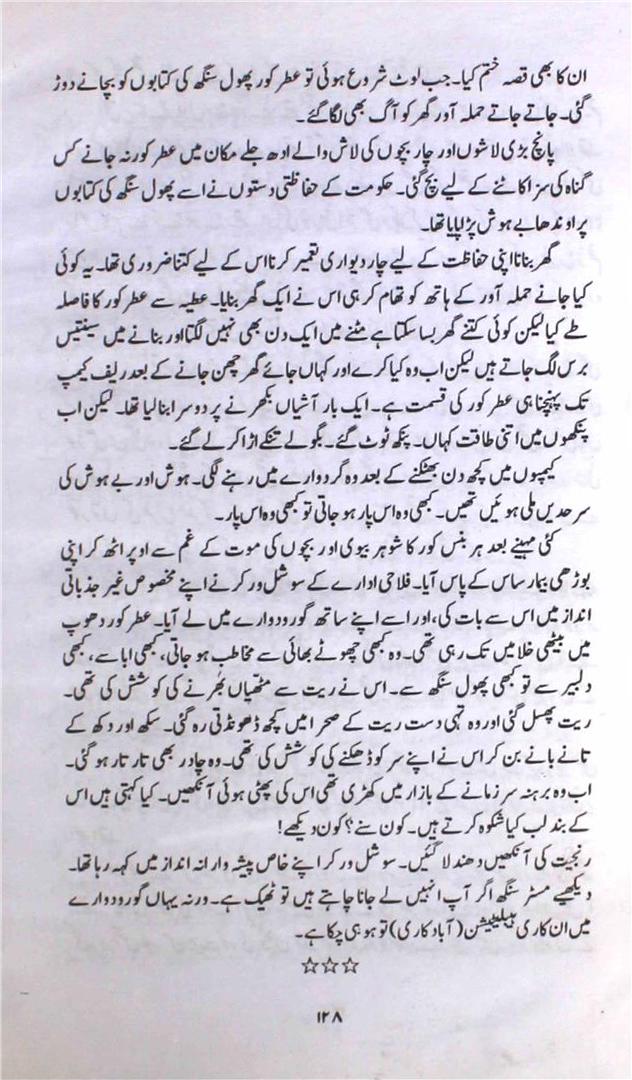 ان کا بھی قصہ ختم کیا۔ جب لوٹ شروع ہوئی تو عطر کور پھول سنگھ کی کتابوں کو بچانے دوڑ
گئی۔ جاتے جاتے حملہ آور گھر کو آگ بھی لگا گئے۔
پانچ بڑی لاشوں اور چار بچوں کی لاش والے ادھ جلے مکان میں عطر کور نہ جانے کس
گناہ کی سزا کاٹنے کے لیے بچ گئی۔ حکومت کے حفاظتی دستوں نے اسے پھول سنگھ کی کتابوں
پر اوندھا بے ہوش پڑا پایا تھا۔
گھر بنانا اپنی حفاظت کے لیے چار دیواری تعمیر کرنا اس کے لیے کتنا ضروری تھا۔ یہ کوئی
کیا جانے حملہ آور کے ہاتھ کو تھام کر ہی اس نے ایک گھر بنایا۔ عطیہ سے عطر کور کا فاصلہ
طے کیا لیکن کوئی کتنے گھر بسا سکتا ہے مٹنے میں ایک دن بھی نہیں لگتا اور بنانے میں سینتیس
برس لگ جاتے ہیں لیکن اب وہ کیا کرے اور کہاں جائے گھر چھن جانے کے بعد ریلف کیمپ
تک پہنچنا ہی عطر کور کی قسمت ہے۔ ایک بار آشیاں بکھرنے پر دوسرا بنا لیا تھا۔ لیکن اب
پنکھوں میں اتنی طاقت کہاں۔ پنکھ ٹوٹ گئے۔ بگولے تنکے اڑا کر لے گئے۔
کیمپوں میں کچھ دن بھٹکنے کے بعد وہ گردوارے میں رہنے لگی۔ ہوش اور بے ہوش کی
سرحدیں ملی ہوئیں تھیں۔ کبھی وہ اس پار ہو جاتی تو کبھی وہ اس پار۔
کئی مہینے بعد ہر بنس کور کا شوہر بیوی اور بچوں کی موت کے غم سے اوپر اٹھ کر اپنی
بوڑھی بیمار ساس کے پاس آیا۔ فلاحی ادارے کے سوشل ورکر نے اپنے مخصوص غیر جذباتی
انداز میں اس سے بات کی، اور اسے اپنے ساتھ گورودوارے میں لے آیا۔ عطر کور دھوپ
میں بیٹھی خلا میں تک رہی تھی۔ وہ کبھی چھوٹے بھائی سے مخاطب ہو جاتی، کبھی ابا سے، کبھی
دلبیر سے تو کبھی پھول سنگھ سے۔ اس نے ریت سے مٹھیاں بھرنے کی کوشش کی تھی۔
ریت پھسل گئی اور وہ تہی دست ریت کے صحرا میں کچھ ڈھونڈتی رہ گئی۔ سکھ اور دکھ کے
تانے بانے بن کر اس نے اپنے سر کو ڈھکنے کی کوشش کی تھی۔ وہ چادر بھی تار تار ہو گئی۔
اب وہ برہنہ سر زمانے کے بازار میں کھڑی تھی اس کی پھٹی ہوئی آنکھیں۔ کیا کہتی ہیں اس
کے بند لب کیا شکوہ کرتے ہیں۔ کون سنے؟ کون دیکھے!
رنجیت کی آنکھیں دھندلا گئیں۔ سوشل ورکر اپنے خاص پیشہ وارانہ انداز میں کہہ رہا تھا۔
دیکھیے مسٹر سنگھ اگر آپ انہیں لے جانا چاہتے ہیں تو ٹھیک ہے۔ ورنہ یہاں گورودوارے
میں ان کا ری ہیبلیٹیشن (آباد کاری) تو ہو ہی چکا ہے۔
☆☆☆
۱۲۸